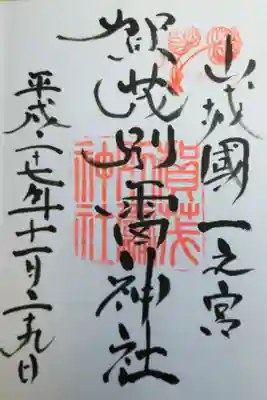 山城國一之宮
賀茂別雷神社
平成二十七年十一月二十九日